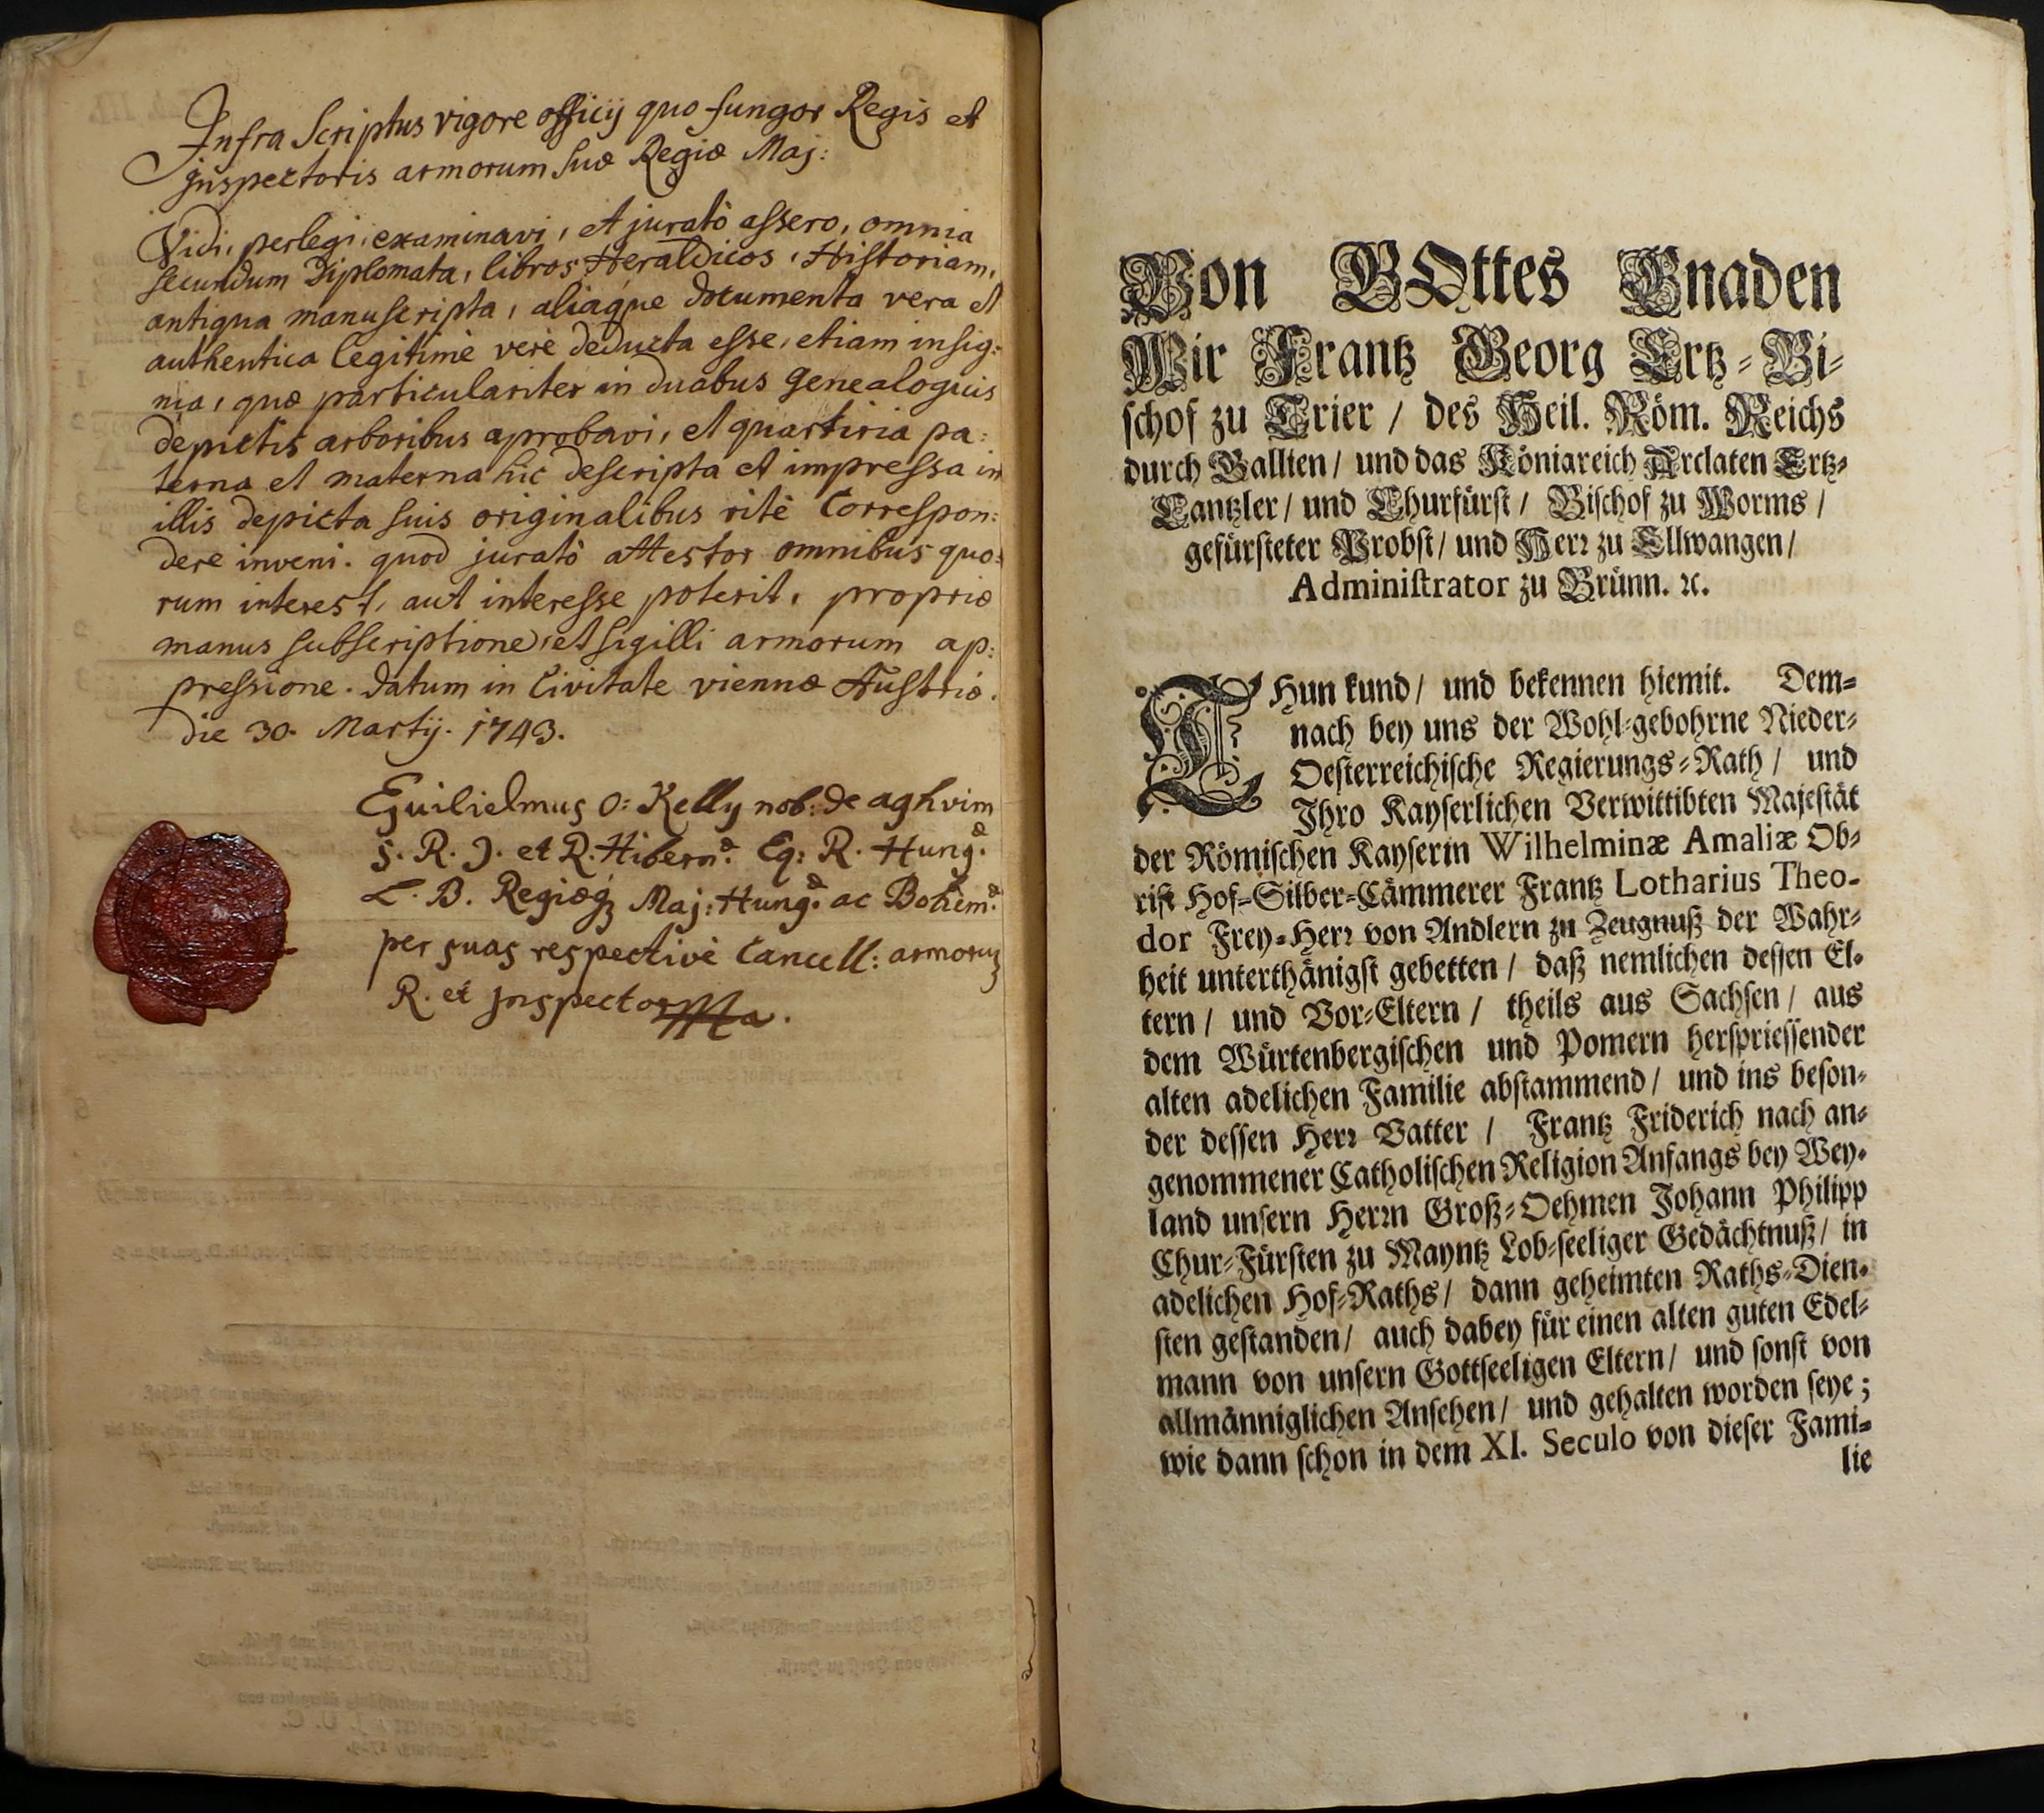 Infra Scriptus vigore officij quo fungor Regis et
Jnspectoris armorum suæ Regiæ Maj:
Vidi, perlegi, examinavi, et juratò assero, omnia
secundum Diplomata, libros Heraldicos, Historiam,
antiqua manuscripta, aliaque documenta vera et
authentica legitimè verè deducta esse, etiam insig:
nia, quæ particulariter in duabus genealogicis
depictis arboribus aprobavi, et quartiria pa:
terna et materna hic descripta et impressa in
illis depicta suis originalibus ritè Correspon:
dere inveni. quod juratò attestor omnibus quo:
rum interest, aut interesse poterit, propriæ
manus subscriptione, et sigilli armorum ap:
pressione. Datum in Civitate viennæ Austriæ.
die 30. Martij. 1743.
Guilielmus O: Kelly nob: de aghrim
S. R. J. et R. Hibern.æ Eq: R. Hung.æ
L. B. Regiæq Maj: Hung.æ ac Bohem.æ
per suas respectivè Cancell: armoru
R. et Jnspector
Von GOttes Gnaden
Wir Frantz Georg Ertz-Bi-
schof zu Trier / des Heil. Röm. Reichs
durch Gallien / und das Königreich Arelaten Ertz-
Cantzler / und Churfürst / Bischof zu Worms /
gefürsteter Probst / und Herr zu Ellwangen /
Administrator zu Brünn. ꝛc.
THun kund / und bekennen hiemit. Dem-
nach bey uns der Wohl-gebohrne Nieder-
Oesterreichische Regierungs-Rath / und
Ihro Kayserlichen Verwittibten Majestät
der Römischen Kayserin Wilhelminæ Amaliæ Ob-
rist Hof-Silber-Cämmerer Frantz Lotharius Theo-
dor Frey-Herr von Andlern zu Zeugnuß der Wahr-
heit unterthänigst gebetten / daß nemlichen dessen El-
tern / und Vor-Eltern / theils aus Sachsen / aus
dem Würtenbergischen und Pomern herspriessender
alten adelichen Familie abstammend / und ins beson-
der dessen Herr Vatter / Frantz Friderich nach an-
genommener Catholischen Religion Anfangs bey Wey-
land unsern Herrn Groß-Oehmen Johann Philipp
Chur-Fürsten zu Mayntz Lob-seeliger Gedächtnuß / in
adelichen Hof-Raths / dann geheimten Raths-Dien-
sten gestanden / auch dabey für einen alten guten Edel-
mann von unsern Gottseeligen Eltern / und sonst von
allmänniglichen Ansehen / und gehalten worden seye;
wie dann schon in dem XI. Seculo von dieser Fami-
lie